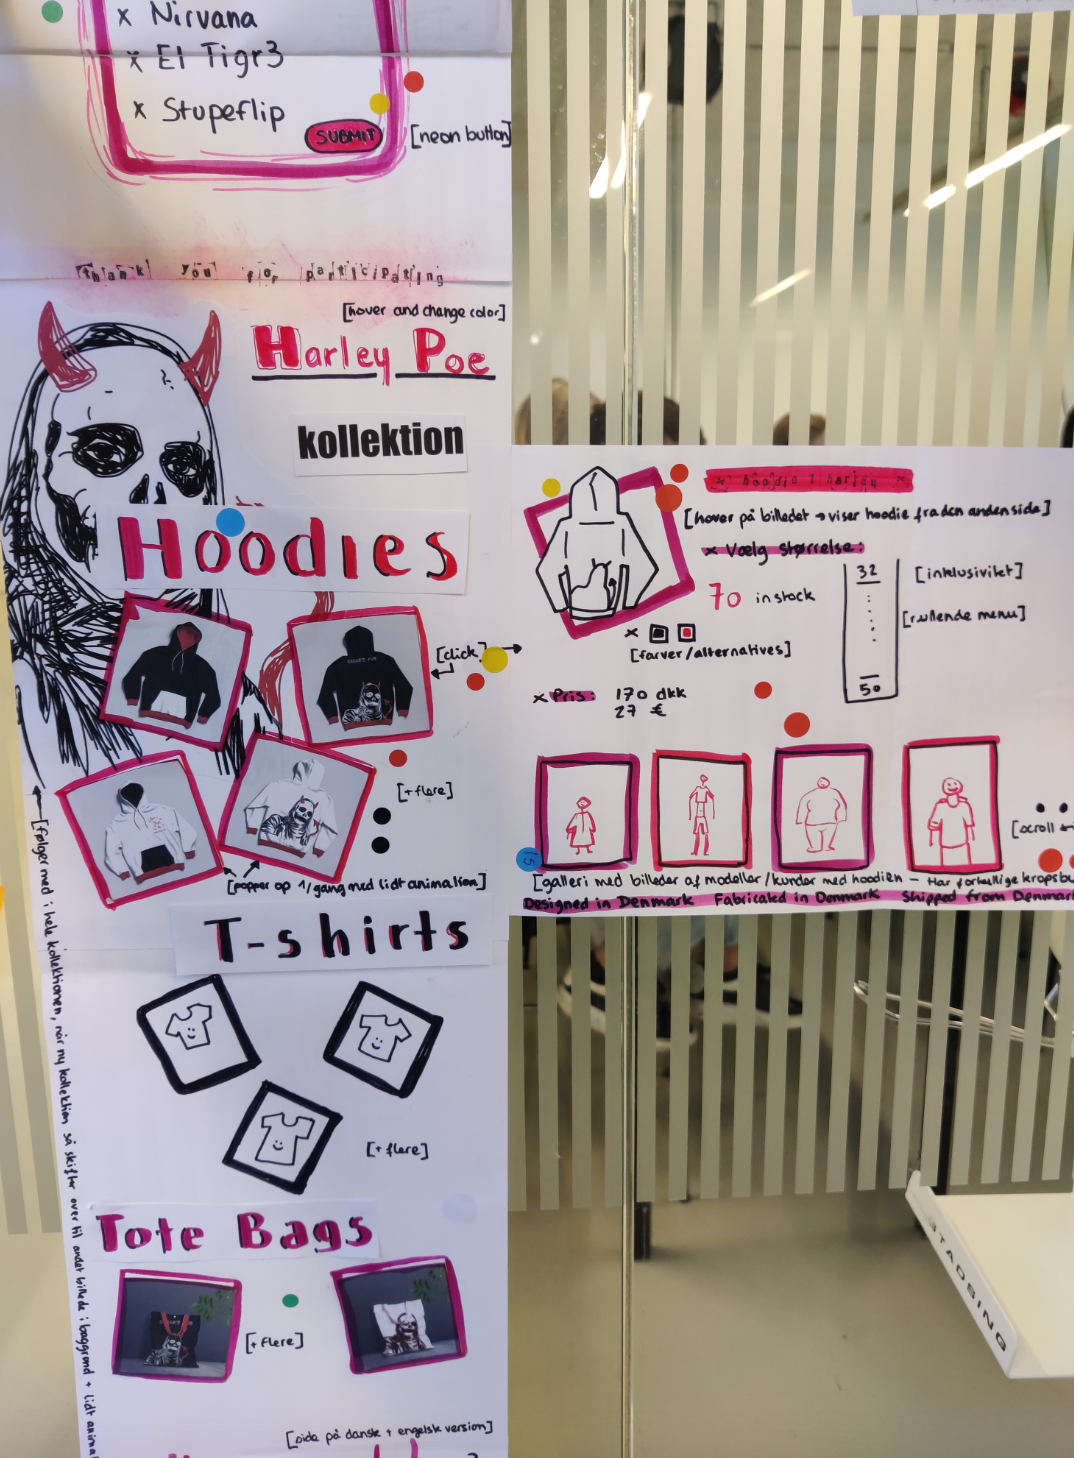 x Nirvana
x El Tigr3
x Stupeflip
SUBMIT
[neon button]
thank you for participating
[hover and change color]
Harley Poe
kollektion
Hoodies
[click]
[+ flere]
[popper op 1/gang med lidt animation]
[følger med i hele kollektionen, når ny kollektion så skifter over til andet billede i baggrund + lidt
T-shirts
[+ flere]
Tote Bags
[+ flere]
[side på dansk + engelsk version]
[hover på billedet → viser hoodie fra den anden side]
x Vælg størrelse:
70 in stock
32
50
[inklusivitet]
[rullende menu]
x
[farver/alternatives]
x Pris: 170 dkk
27 €
[scroll
15
[galleri med billeder af modeller/kunder med hoodien — Har forskellige
Designed in Denmark Fabricated in Denmark Shipped from Denmark
STADSING